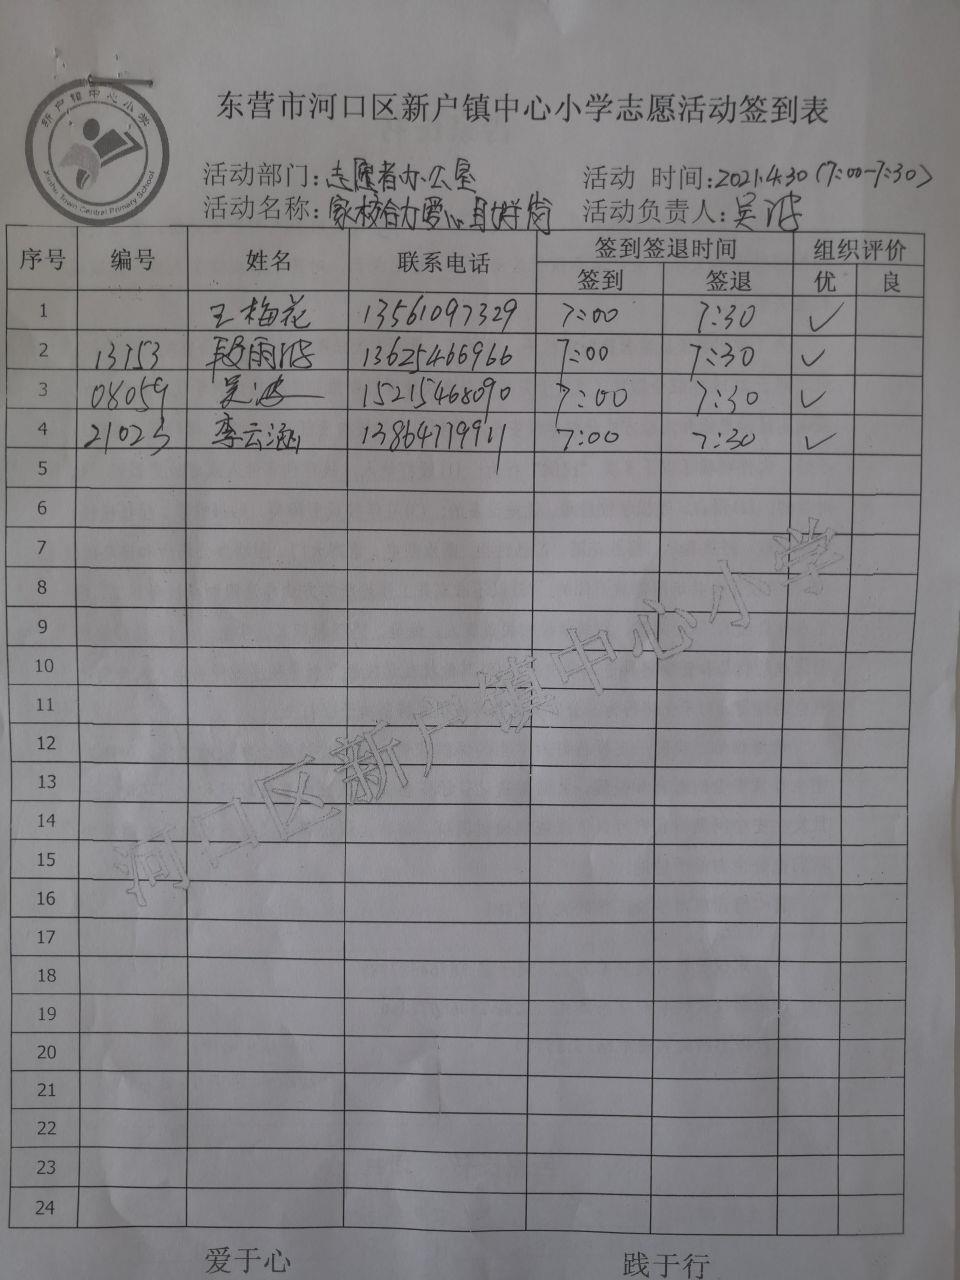 新户镇中心小学
Xinhu Town Central Primary School
东营市河口区新户镇中心小学志愿活动签到表
活动部门：志愿者办公室 活动 时间：2021.4.30（7:00-7:30）
活动名称：家校合力爱心护学岗 活动负责人：吴波
序号 编号 姓名 联系电话 签到签退时间 组织评价
签到 签退 优 良
1 王梅花 13561097329 7:00 7:30 ✓
2 13753 段雨 13625466966 7:00 7:30 ✓
3 08059 吴波 15215468090 7:00 7:30 ✓
4 21023 李云涵 7:00 7:30 ✓
5
6
7
8
9
10
11
12
13
14
15
16
17
18
19
20
21
22
23
24
河口区新户镇中心小学
爱于心 践于行